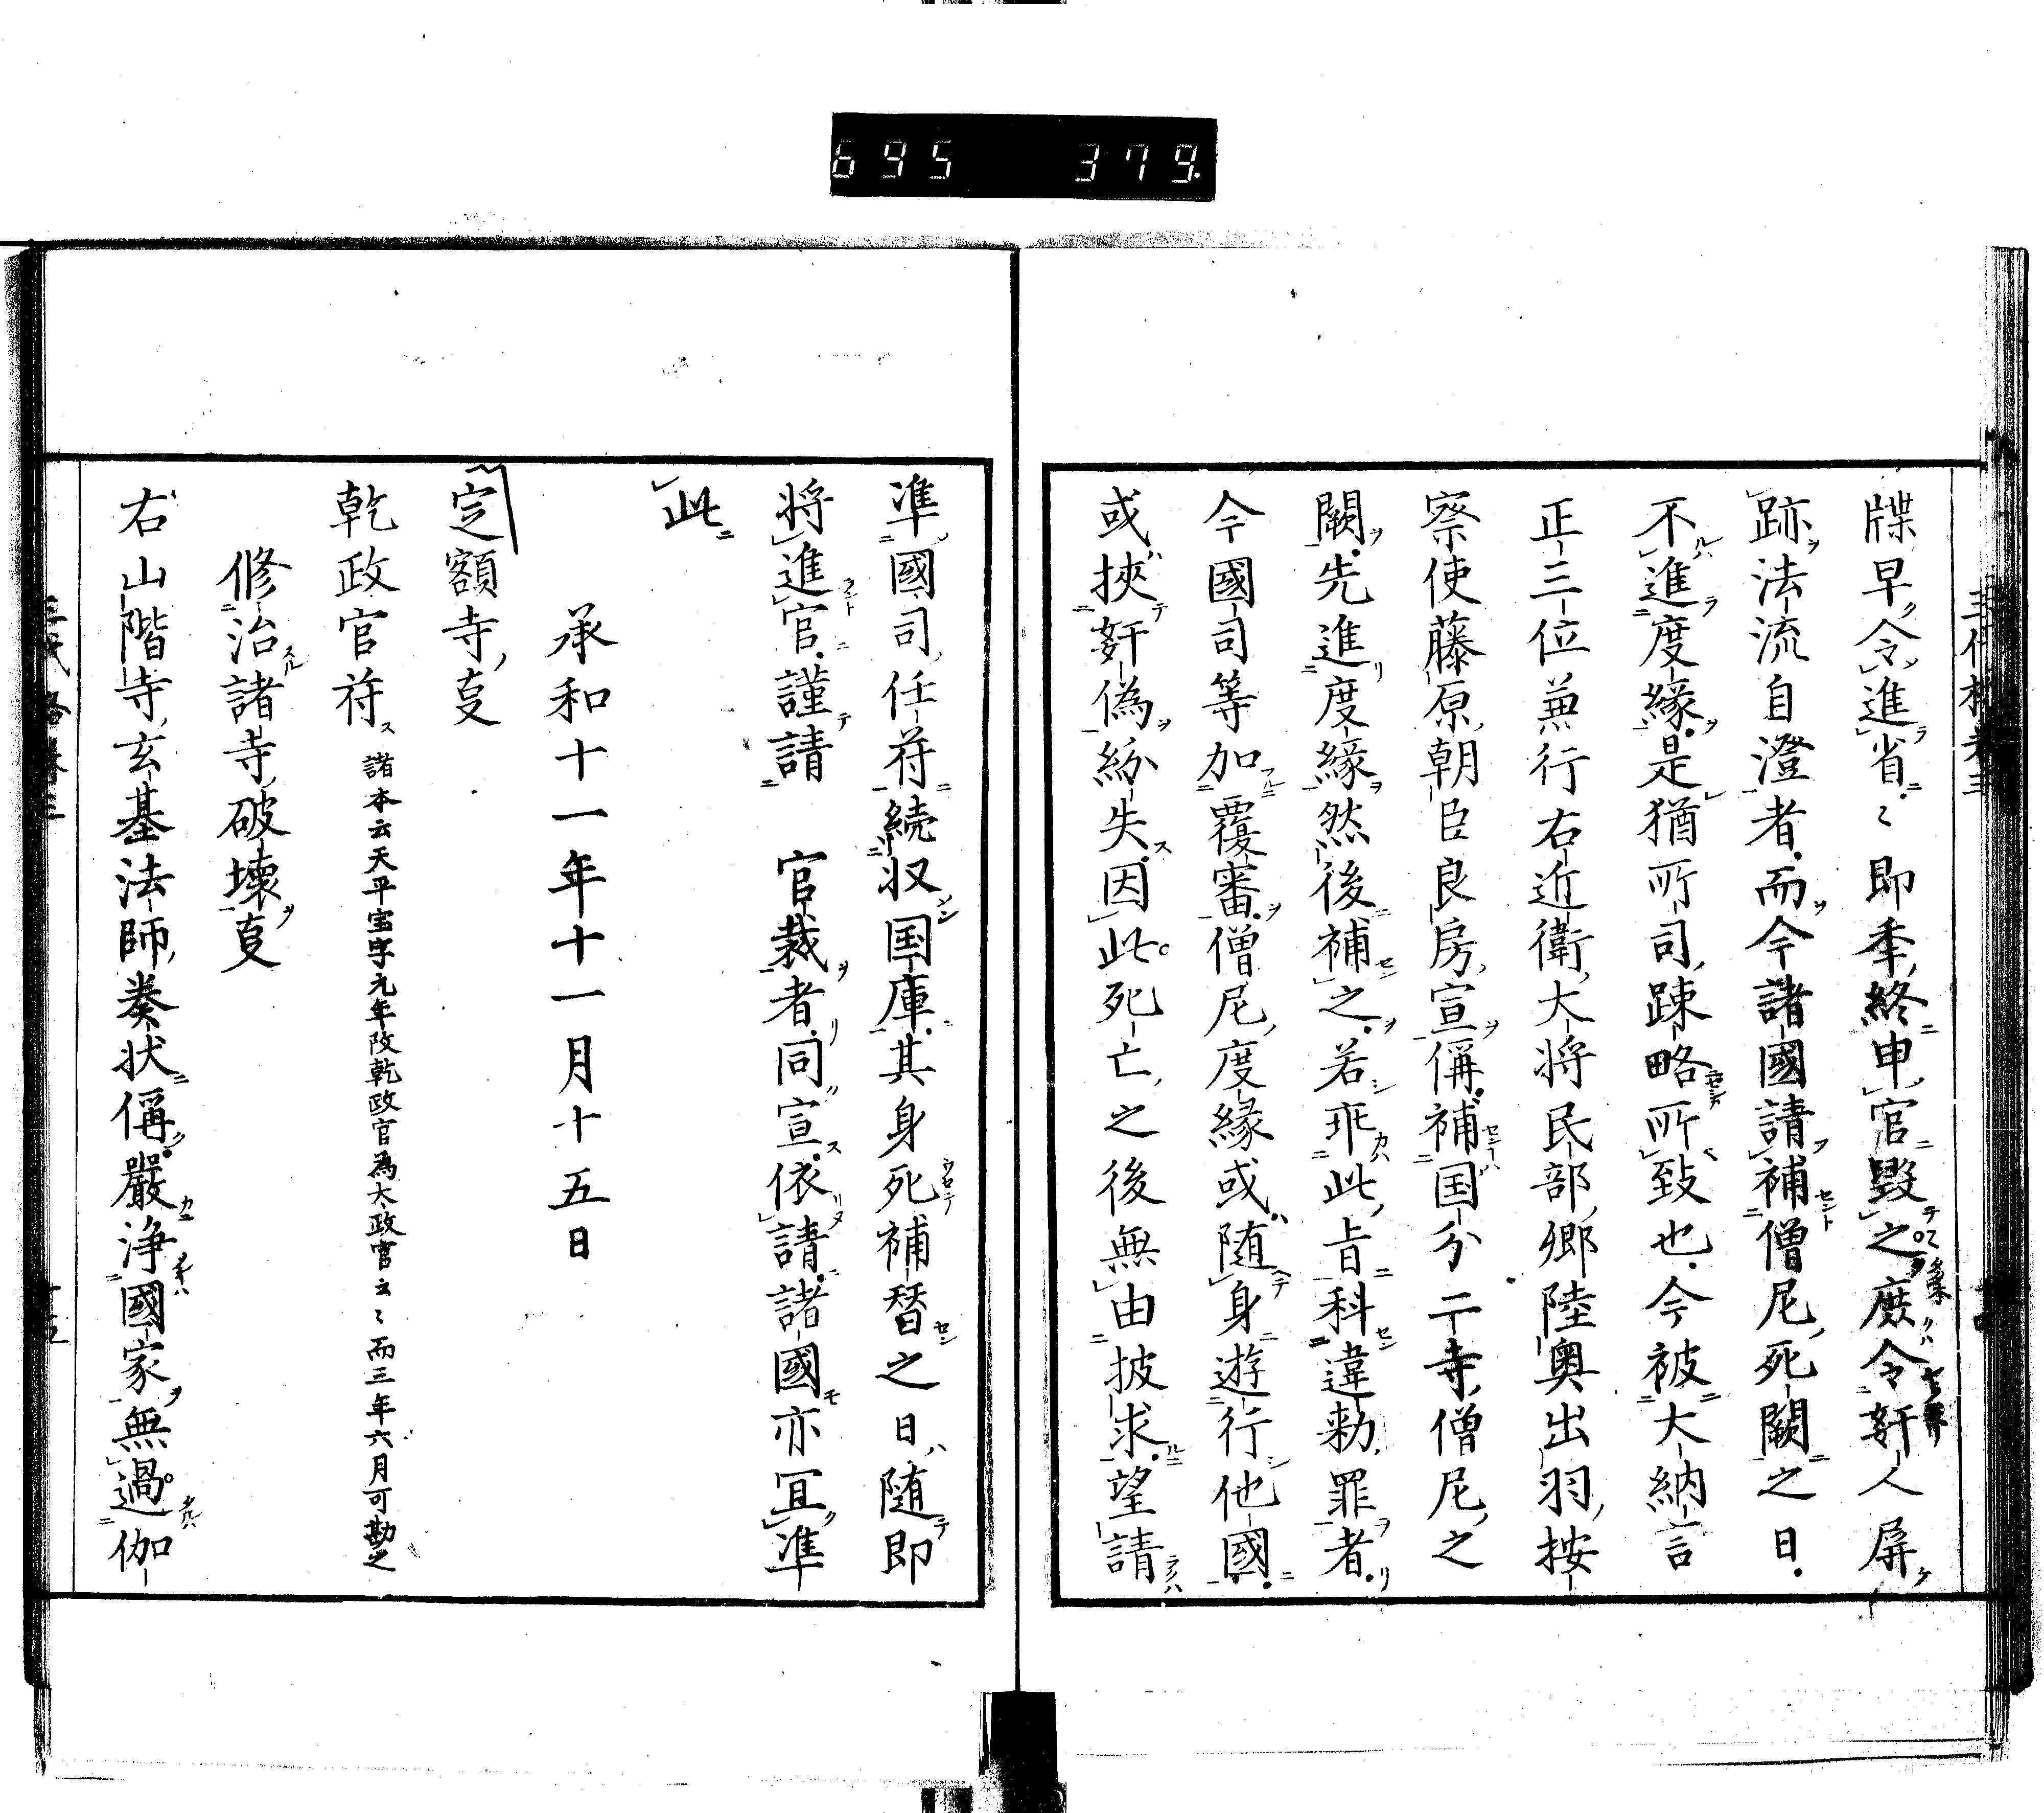 695 379.
牒早令進省〻即季終申官毀之庶令姧人屏
跡法流自澄者而今諸國請補僧尼死闕之日
不進度縁是猶所司踈略所致也今被大納言
正三位兼行右近衛大将民部卿陸奥出羽按
察使藤原朝臣良房宣偁補国分二寺僧尼之
闕先進度縁然後補之若乖此旨科違勅罪者
今國司等加覆審僧尼度縁或随身遊行他國
或挾姧偽紛失因此死亡之後無由披求望請
准國司任符続収国庫其身死補替之日随即
将進官謹請　官裁者同宣依請諸國亦冝准
此
承和十一年十一月十五日
定額寺㕝
乾政官符 諸本云天平宝字元年改乾政官為大政官云〻而三年六月可勘之
修治諸寺破壊㕝
右山階寺玄基法師奏状偁嚴浄國家無過伽